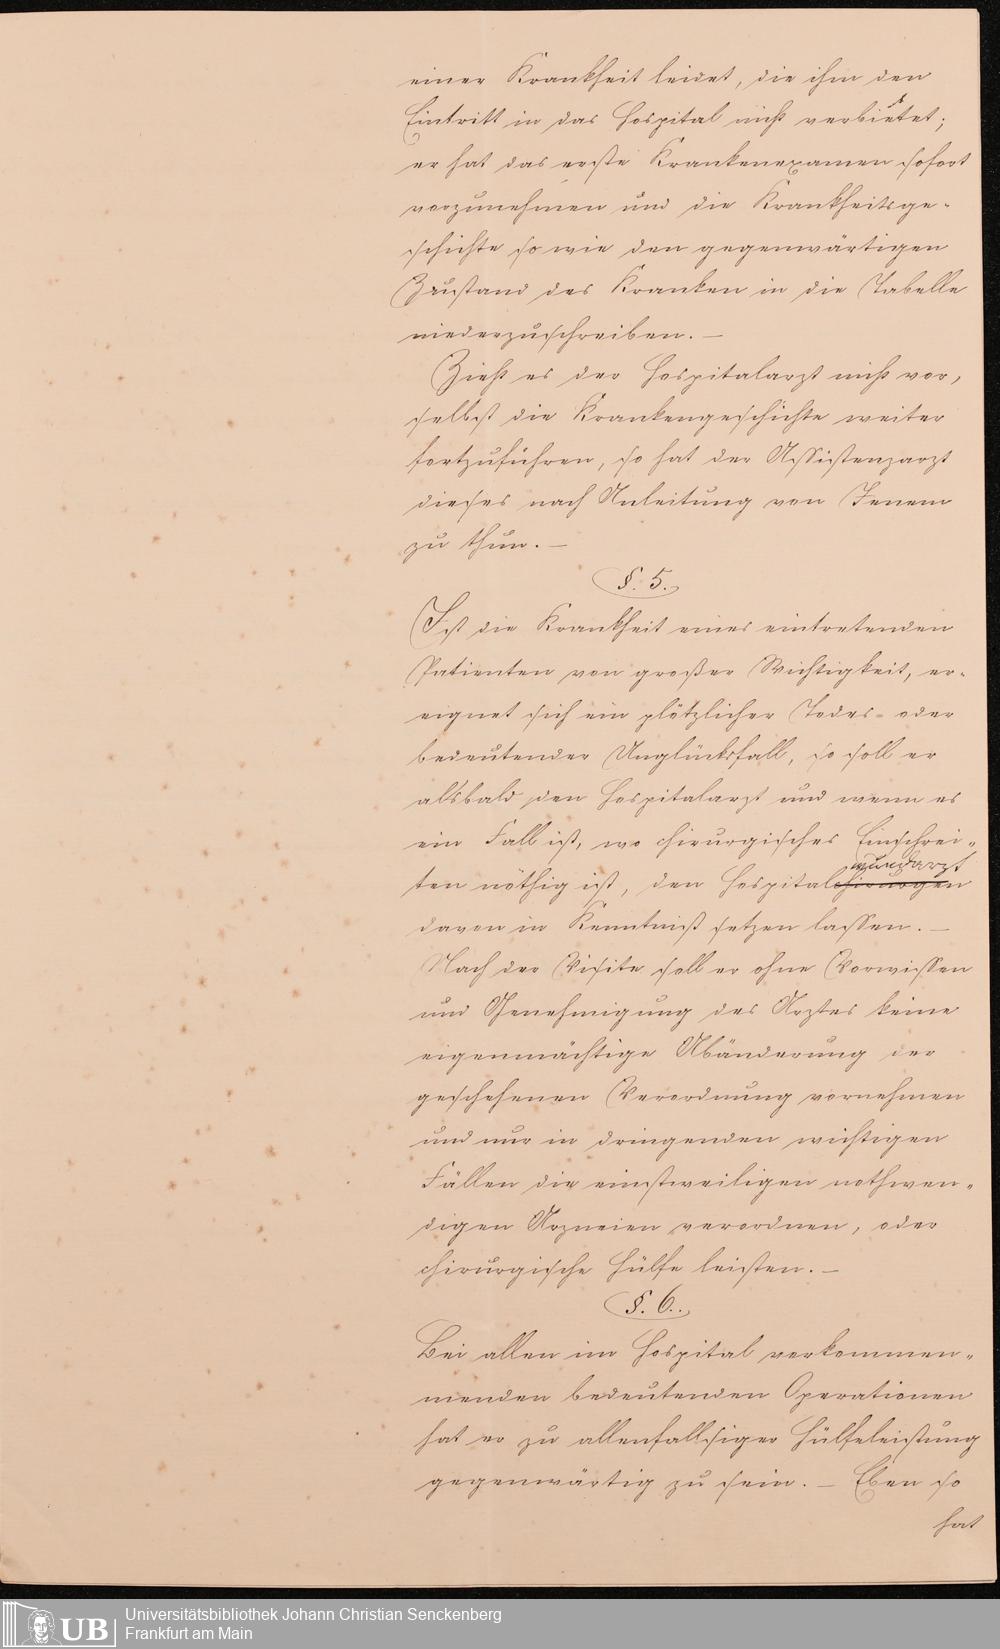 einer Krankheit leidet, die ihm den
Eintritt in das Hospital nicht verbietet;
er hat das erste Krankenexamen sofort
vorzunehmen und die Krankheitsge-
schichte so wie den gegenwärtigen
Zustand des Kranken in die Tabelle
niederzuschreiben. –
Zieht es der Hospitalarzt nicht vor,
selbst die Krankengeschichte weiter
fortzuführen, so hat der Assistenzarzt
dieses nach Anleitung von Jenem
zu thun. –
§. 5.
Ist die Krankheit eines eintretenden
Patienten von großer Wichtigkeit, er-
eignet sich ein plötzlicher Todes- oder
bedeutender Unglücksfall, so soll er
alsbald den Hospitalarzt und wenn es
ein Fall ist, wo chirurgisches Einschrei-
wundarzt
ten nöthig ist, den Hospitalchirurgen
davon in Kenntniß setzen lassen. –
Nach der Visite soll er ohne Vorwissen
und Genehmigung des Arztes keine
eigenmächtige Abänderung der
geschehenen Verordnung vornehmen
und nur in dringenden wichtigen
Fällen die einstweiligen nothwen-
digen Arzneien verordnen, oder
chirurgische Hülfe leisten. –
§. 6.
Bei allen im Hospital vorkommen-
menden bedeutenden Operationen
hat er zu allenfallsiger Hülfeleistung
gegenwärtig zu sein. – Eben so
hat
UB
Universitätsbibliothek Johann Christian Senckenberg
Frankfurt am Main